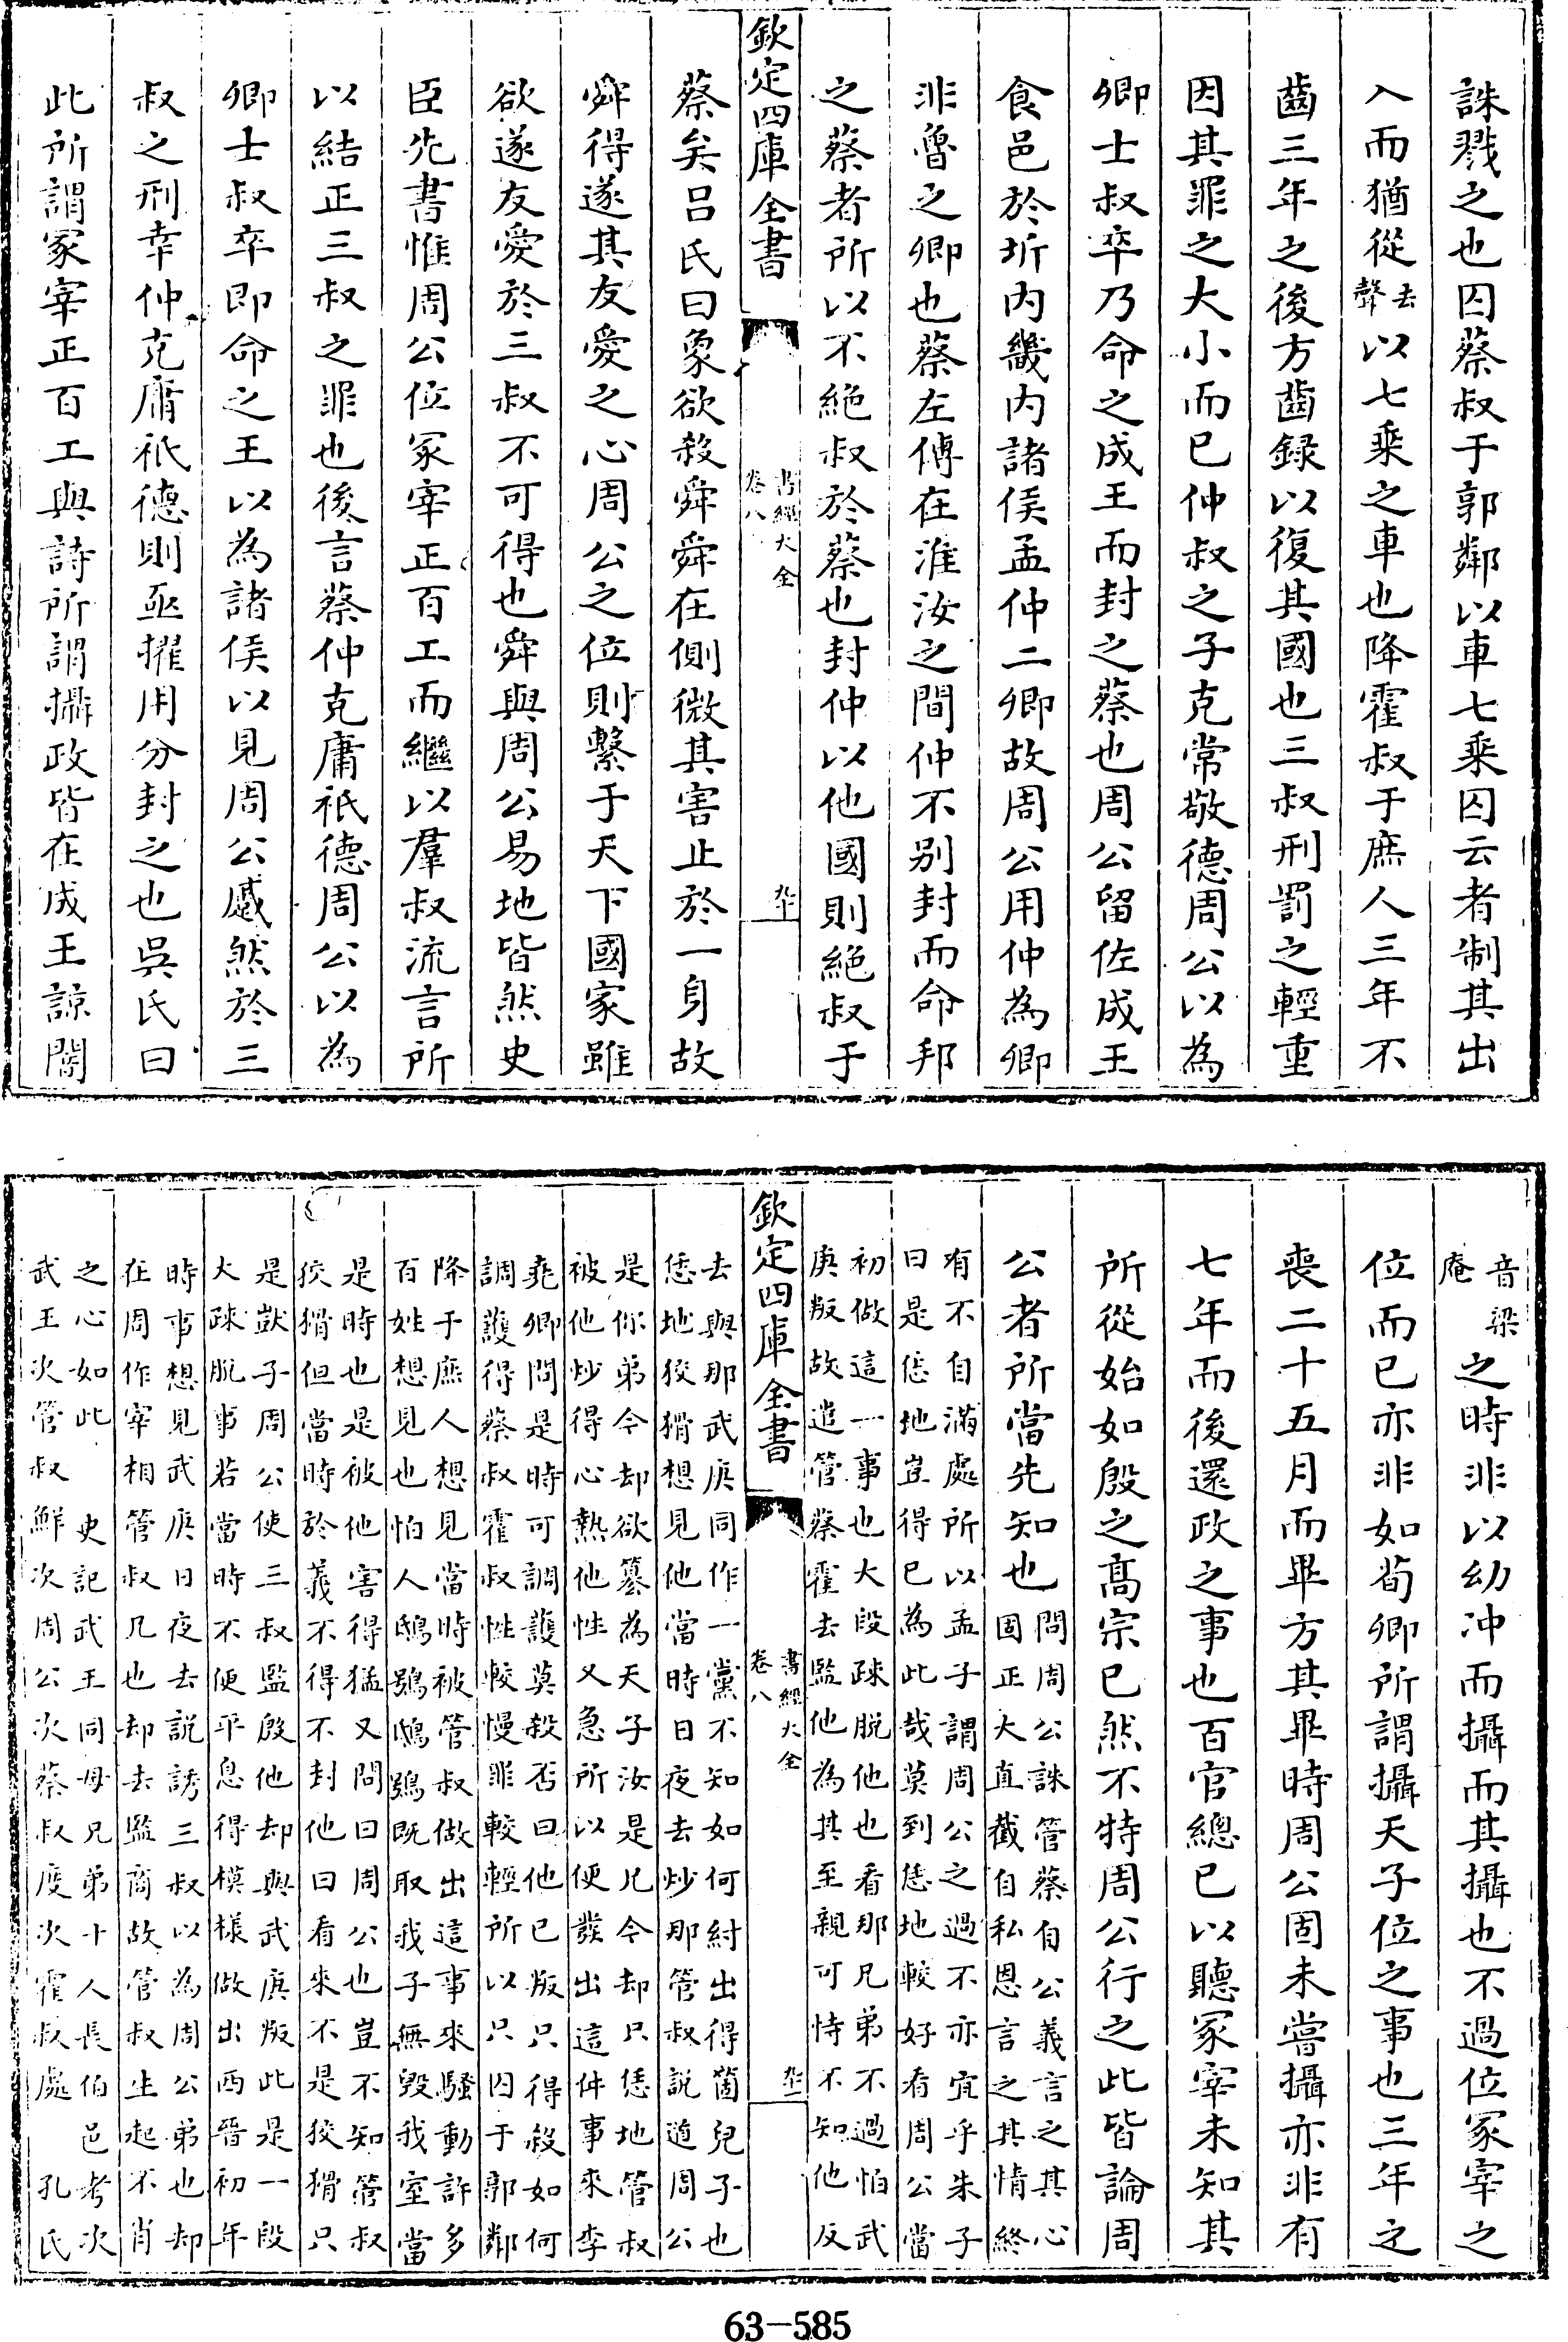 誅戮之也囚蔡叔于郭鄰以車七乘囚云者制其出
入而猶從去聲以七乘之車也降霍叔于庶人三年不
齒三年之後方齒録以復其國也三叔刑罰之輕重
因其罪之大小而已仲叔之子克常敬德周公以為
卿士叔卒乃命之成王而封之蔡也周公留佐成王
食邑於圻内畿内諸侯孟仲二卿故周公用仲為卿
非魯之卿也蔡左傳在淮汝之間仲不别封而命邦
之蔡者所以不絶叔於蔡也封仲以他國則絶叔于
欽定四庫全書
書經大全
卷八
蔡矣吕氏曰象欲殺舜舜在側微其害止於一身故
舜得遂其友愛之心周公之位則繫于天下國家雖
欲遂友愛於三叔不可得也舜與周公易地皆然史
臣先書惟周公位冢宰正百工而繼以羣叔流言所
以結正三叔之罪也後言蔡仲克庸祇德周公以為
卿士叔卒即命之王以為諸侯以見周公蹙然於三
叔之刑幸仲克庸祇德則亟擢用分封之也吳氏曰
此所謂冢宰正百工與詩所謂攝政皆在成王諒闇
音梁
庵
之時非以幼冲而攝而其攝也不過位冢宰之
位而已亦非如荀卿所謂攝天子位之事也三年之
喪二十五月而畢方其畢時周公固未嘗攝亦非有
七年而後還政之事也百官總已以聽冢宰未知其
所從始如殷之高宗已然不特周公行之此皆論周
公者所當先知也
問周公誅管蔡自公義言之其心
固正大直截自私恩言之其情終
有不自滿處所以孟子謂周公之過不亦宜乎朱子
曰是恁地豈得已為此哉莫到恁地較好看周公當
初做這一事也大段疎脱他也看那兄弟不過怕武
庚叛故遣管蔡霍去監他為其至親可恃不知他反
欽定四庫全書
書經大全
卷八
去與那武庚同作一黨不知如何紂出得箇兒子也
恁地狡猾想見他當時日夜去炒那管叔說道周公
是你弟今却欲簒為天子汝是兄今却只恁地管叔
被他炒得心熱他性又急所以便發出這件事來李
堯卿問是時可調護莫殺否曰他已叛只得殺如何
調護得蔡叔霍叔性較慢罪較輕所以只囚于郭鄰
降于庶人想見當時被管叔做出這事來騷動許多
百姓想見也怕人鴟鴞鴟鴞既取我子無毁我室當
是時也是被他害得猛又問曰周公也豈不知管叔
狡猾但當時於義不得不封他曰看來不是狡猾只
是獃子周公使三叔監殷他却與武庚叛此是一段
大疎脱事若當時不便平息得模樣做出西晉初年
時事想見武庚日夜去説誘三叔以為周公弟也却
在周作宰相管叔兄也却去監商故管叔生起不肖
之心如此 史記武王同母兄弟十人長伯邑考次
武王次管叔鮮次周公次蔡叔度次霍叔處 孔氏
63-585